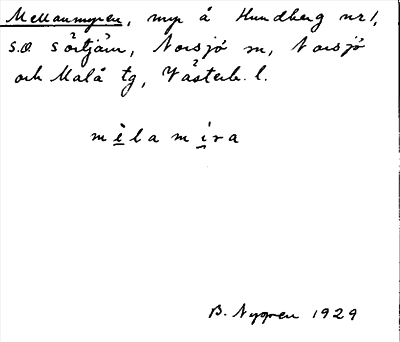 Mellanmyren, myr å Hundberg nr 1,
s.o. Sörtjärn, Norsjö sn, Norsjö
och Malå tg, Västerb. l.
mèlamíra
B. Nygren 1929